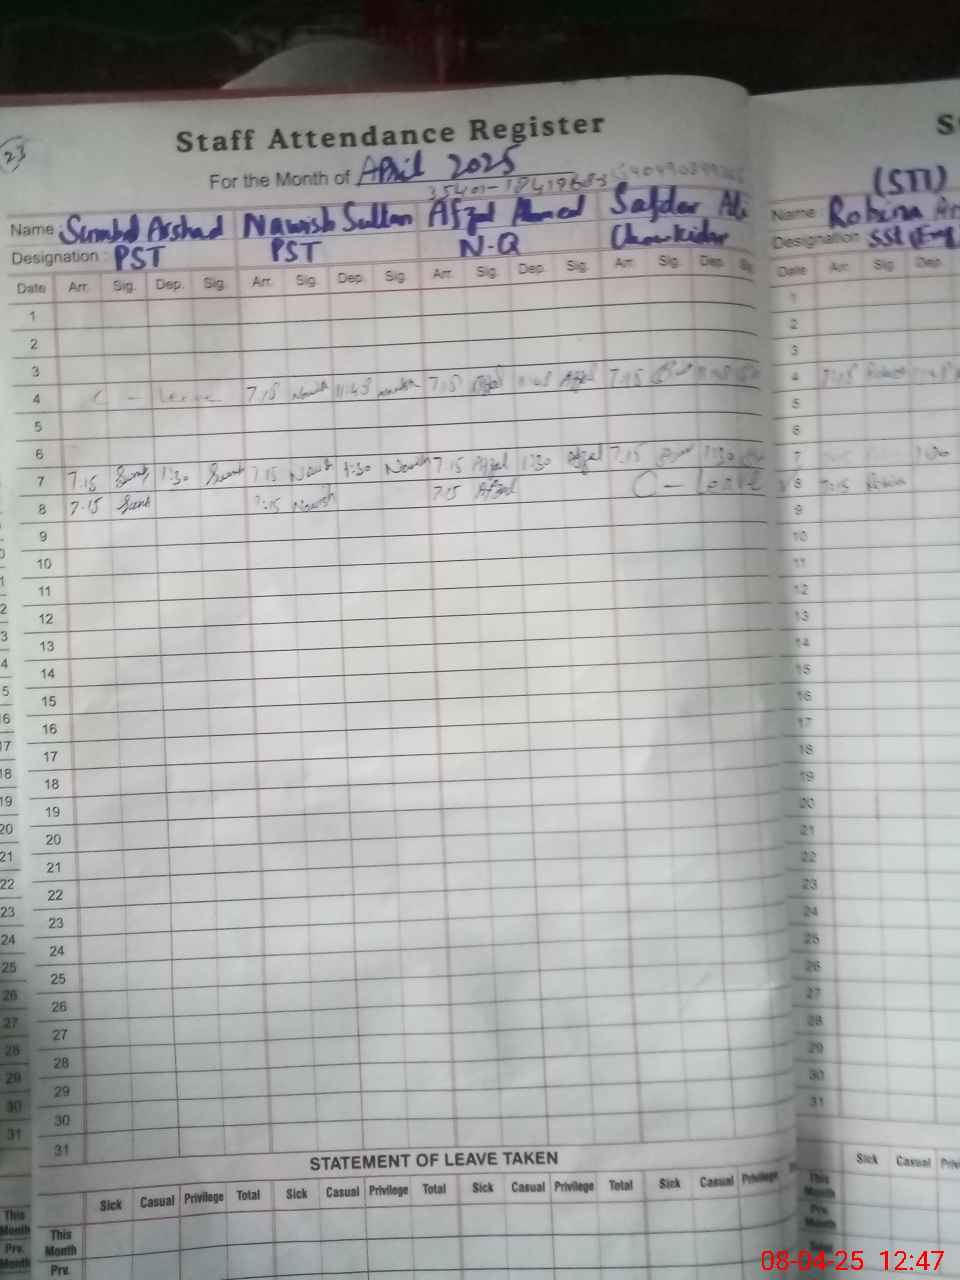 23
Staff Attendance Register
For the Month of April 2025
35401-1841968-3
Name Sumbal Arshad Nawish Sultan Afzal Ahmed Safdar Ali
Designation : PST PST N-Q Chowkidar
Date Arr. Sig. Dep. Sig. Arr. Sig. Dep. Sig. Arr. Sig. Dep. Sig. Arr. Sig. Dep. Sig.
1
2
3
4 C - Leave 7:15 Nawish 11:45 Nawish 7:15 Afzal 11:45 Afzal 7:15
5
6
7 7:15 Sumb 1:30 Sumb 7:15 Nawish 1:30 Nawish 7:15 Afzal 1:30 Afzal 7:15 1:30
8 7:15 Sumb 7:15 Nawish 7:15 Afzal C - Leave
9
10
11
12
13
14
15
16
17
18
19
20
21
22
23
24
25
26
27
28
29
30
31
STATEMENT OF LEAVE TAKEN
Sick Casual Privilege Total Sick Casual Privilege Total Sick Casual Privilege Total Sick Casual Privilege
This Month
Prv.
(STI)
Name Robina
Designation SSt (Eng
Date Arr. Sig. Dep.
1
2
3
4 7:15 Robina
5
6
7 1:30
8 7:15 Robina
9
10
11
12
13
14
15
16
17
18
19
20
21
22
23
24
25
26
27
28
29
30
31
Sick Casual
This Month
Prv. Month
08-04-25 12:47